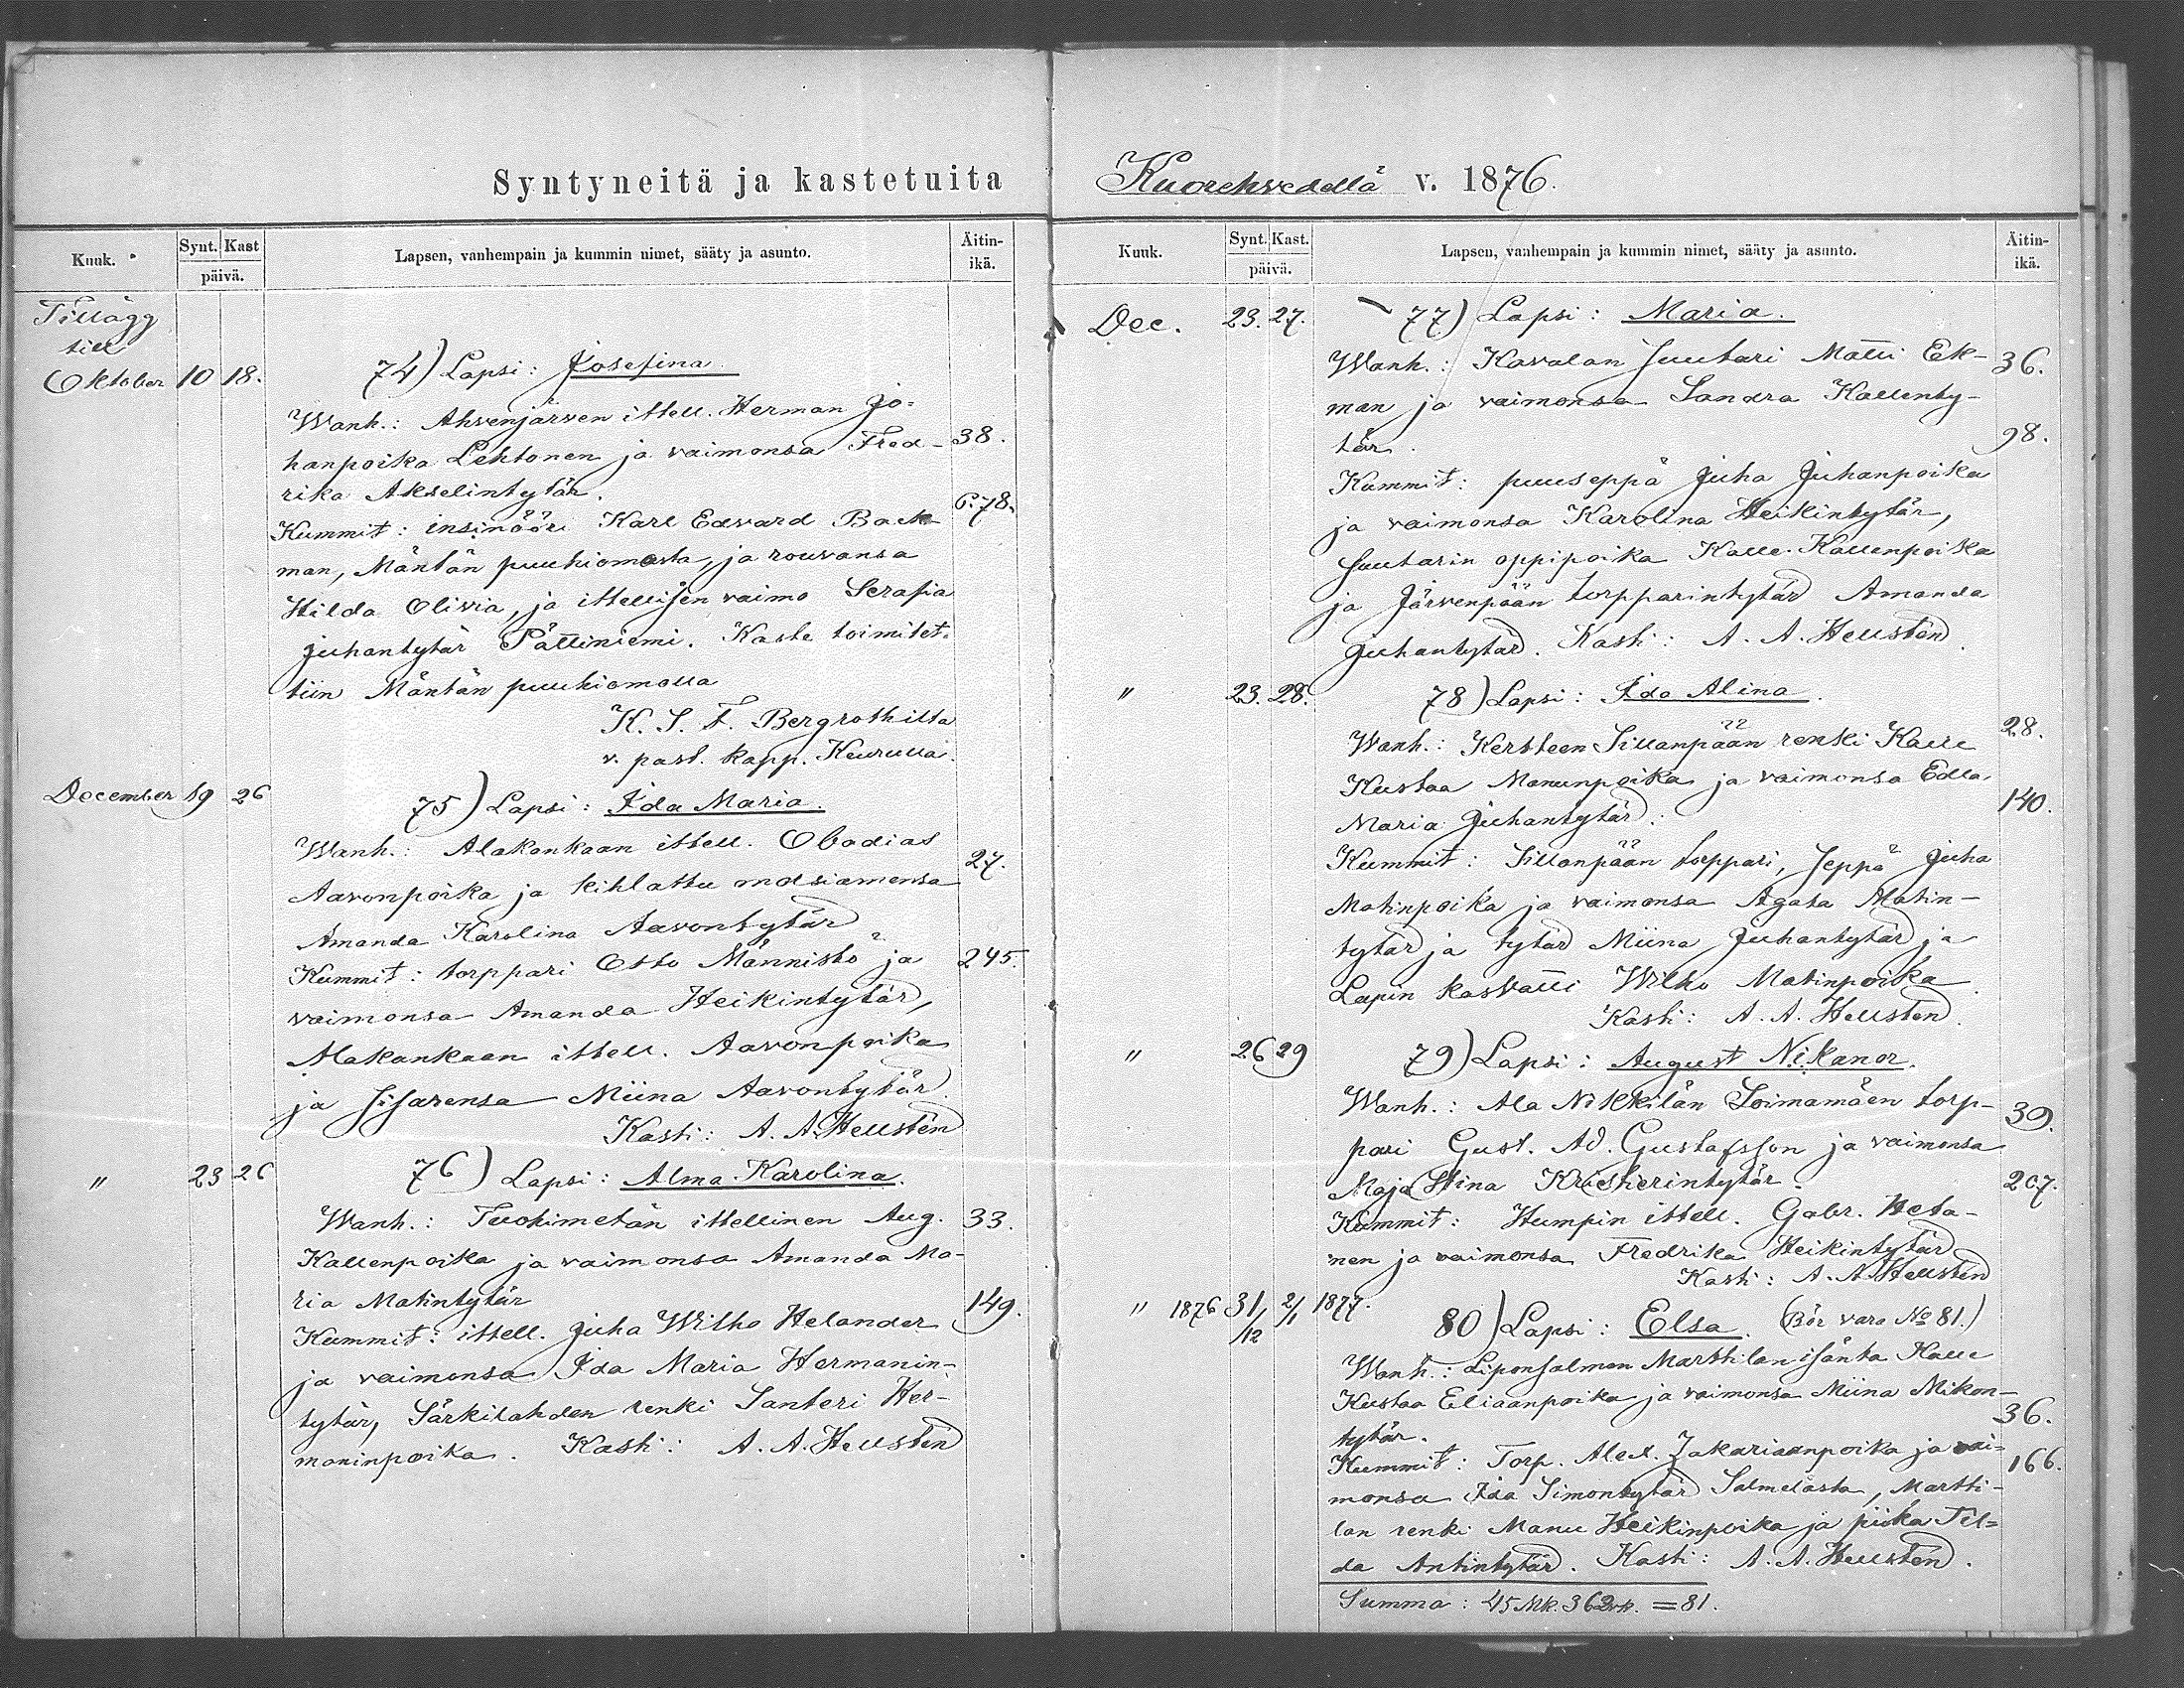 Syntyneitä ja kastetuita
Kuuk.
Synt. Kast
päivä.
Lapsen, vanhempain ja kummin nimet, sääty ja asunto.
Äitin-
ikä.
Tillägg
till
Oktober 10 18. 74) Lapsi: Josefina
Wanh.: Ahvenjärven ittell. Herman Jo=
hanpoika Lehtonen ja vaimonsa Fred- 38.
rika Akselintytär.
Kummit: insinööri Karl Edvard Back- 78.
man, Mäntän puuhiomosta, ja rouvansa
Hilda Olivia, ja ittellisen vaimo Serafia
Juhantytär Pättiniemi. Kaste toimitet=
tiin Mäntän puuhiomolla
K. S. F. Bergrothilta
v. past. kapp. Keurulla.
December 19 26 75) Lapsi: Ida Maria.
Wanh.: Alakonkaan ittell. Obadias
Aavonpoika ja kihlattu 27.
Amanda Karolina Aavontytär
Kummit: torppari Otto Männistö ja 245.
vaimonsa Amanda Heikintytär,
Alakankaan ittell. Aavonpoika
ja sisarensa Miina Aavontytär.
Kasti: A. A. Hellstén
" 23 26 76) Lapsi: Alma Karolina.
Wanh.: Tuohimetän ittellinen Aug. 33.
Kallenpoika ja vaimonsa Amanda Ma-
ria Matintytär 149.
Kummit: ittell. Juha Wilho Helander
ja vaimonsa Ida Maria Hermanin-
tytär, Särkilahden renki Santeri Her-
maninpoika. Kasti: A. A. Hellstén
Kuorehvedellä v. 1876.
Kuuk.
Synt. Kast.
päivä.
Lapsen, vanhempain ja kummin nimet, sääty ja asunto.
Äitin-
ikä.
Dec. 23. 27. 77) Lapsi: Maria.
Wanh.: Kavalan suutari Matti Ek- 36.
man ja vaimonsa Sandra Kallenty-
tär. 98.
Kummit: puuseppä Juha Juhanpoika
ja vaimonsa Karolina Heikintytär,
suutarin oppipoika Kalle Kallenpoika
ja Järvenpään torpparintytär Amanda
Juhantytär. Kasti: A. A. Hellstén.
" 23. 28. 78) Lapsi: Ida Alina.
Wanh.: Kertteen Sillanpään renki Kalle 28.
Kustaa Manunpoika ja vaimonsa Edla
Maria Juhantytär. 140.
Kummit: Sillanpään torppari, seppä Juha
Matinpoika ja vaimonsa Agata Matin-
tytär ja tytär Miina Juhantytär ja
Lapin kasvatti Wilho Matinpoika.
Kasti: A. A. Hellstén.
" 26 29 79) Lapsi: August Nikanor.
Wanh.: Ala Nikkilän Loimamäen torp- 39.
pari Gust. Ad. Gustafsson ja vaimonsa
Maja Stina 207.
Kummit: Humpin ittell. Gabr. Heta-
nen ja vaimonsa Fredrika Heikintytär
Kasti: A. A. Hellstén
" 1876 31/12 2/1 1877. 80) Lapsi: Elsa. (Bör vara No 81.)
Wanh.: Liponsalmen Marttilan isäntä Kalle
Kustaa Eliaanpoika ja vaimonsa Miina Mikon-
tytär. 36.
Kummit: Torp. Alex. Zakariaanpoika ja vai= 166.
monsa Ida Simontytär Salmelasta, Martti-
lan renki Manu Heikinpoika ja piika Til=
da Antintytär. Kasti: A. A. Hellstén.
Summa: 45 Mk. 36 = 81.